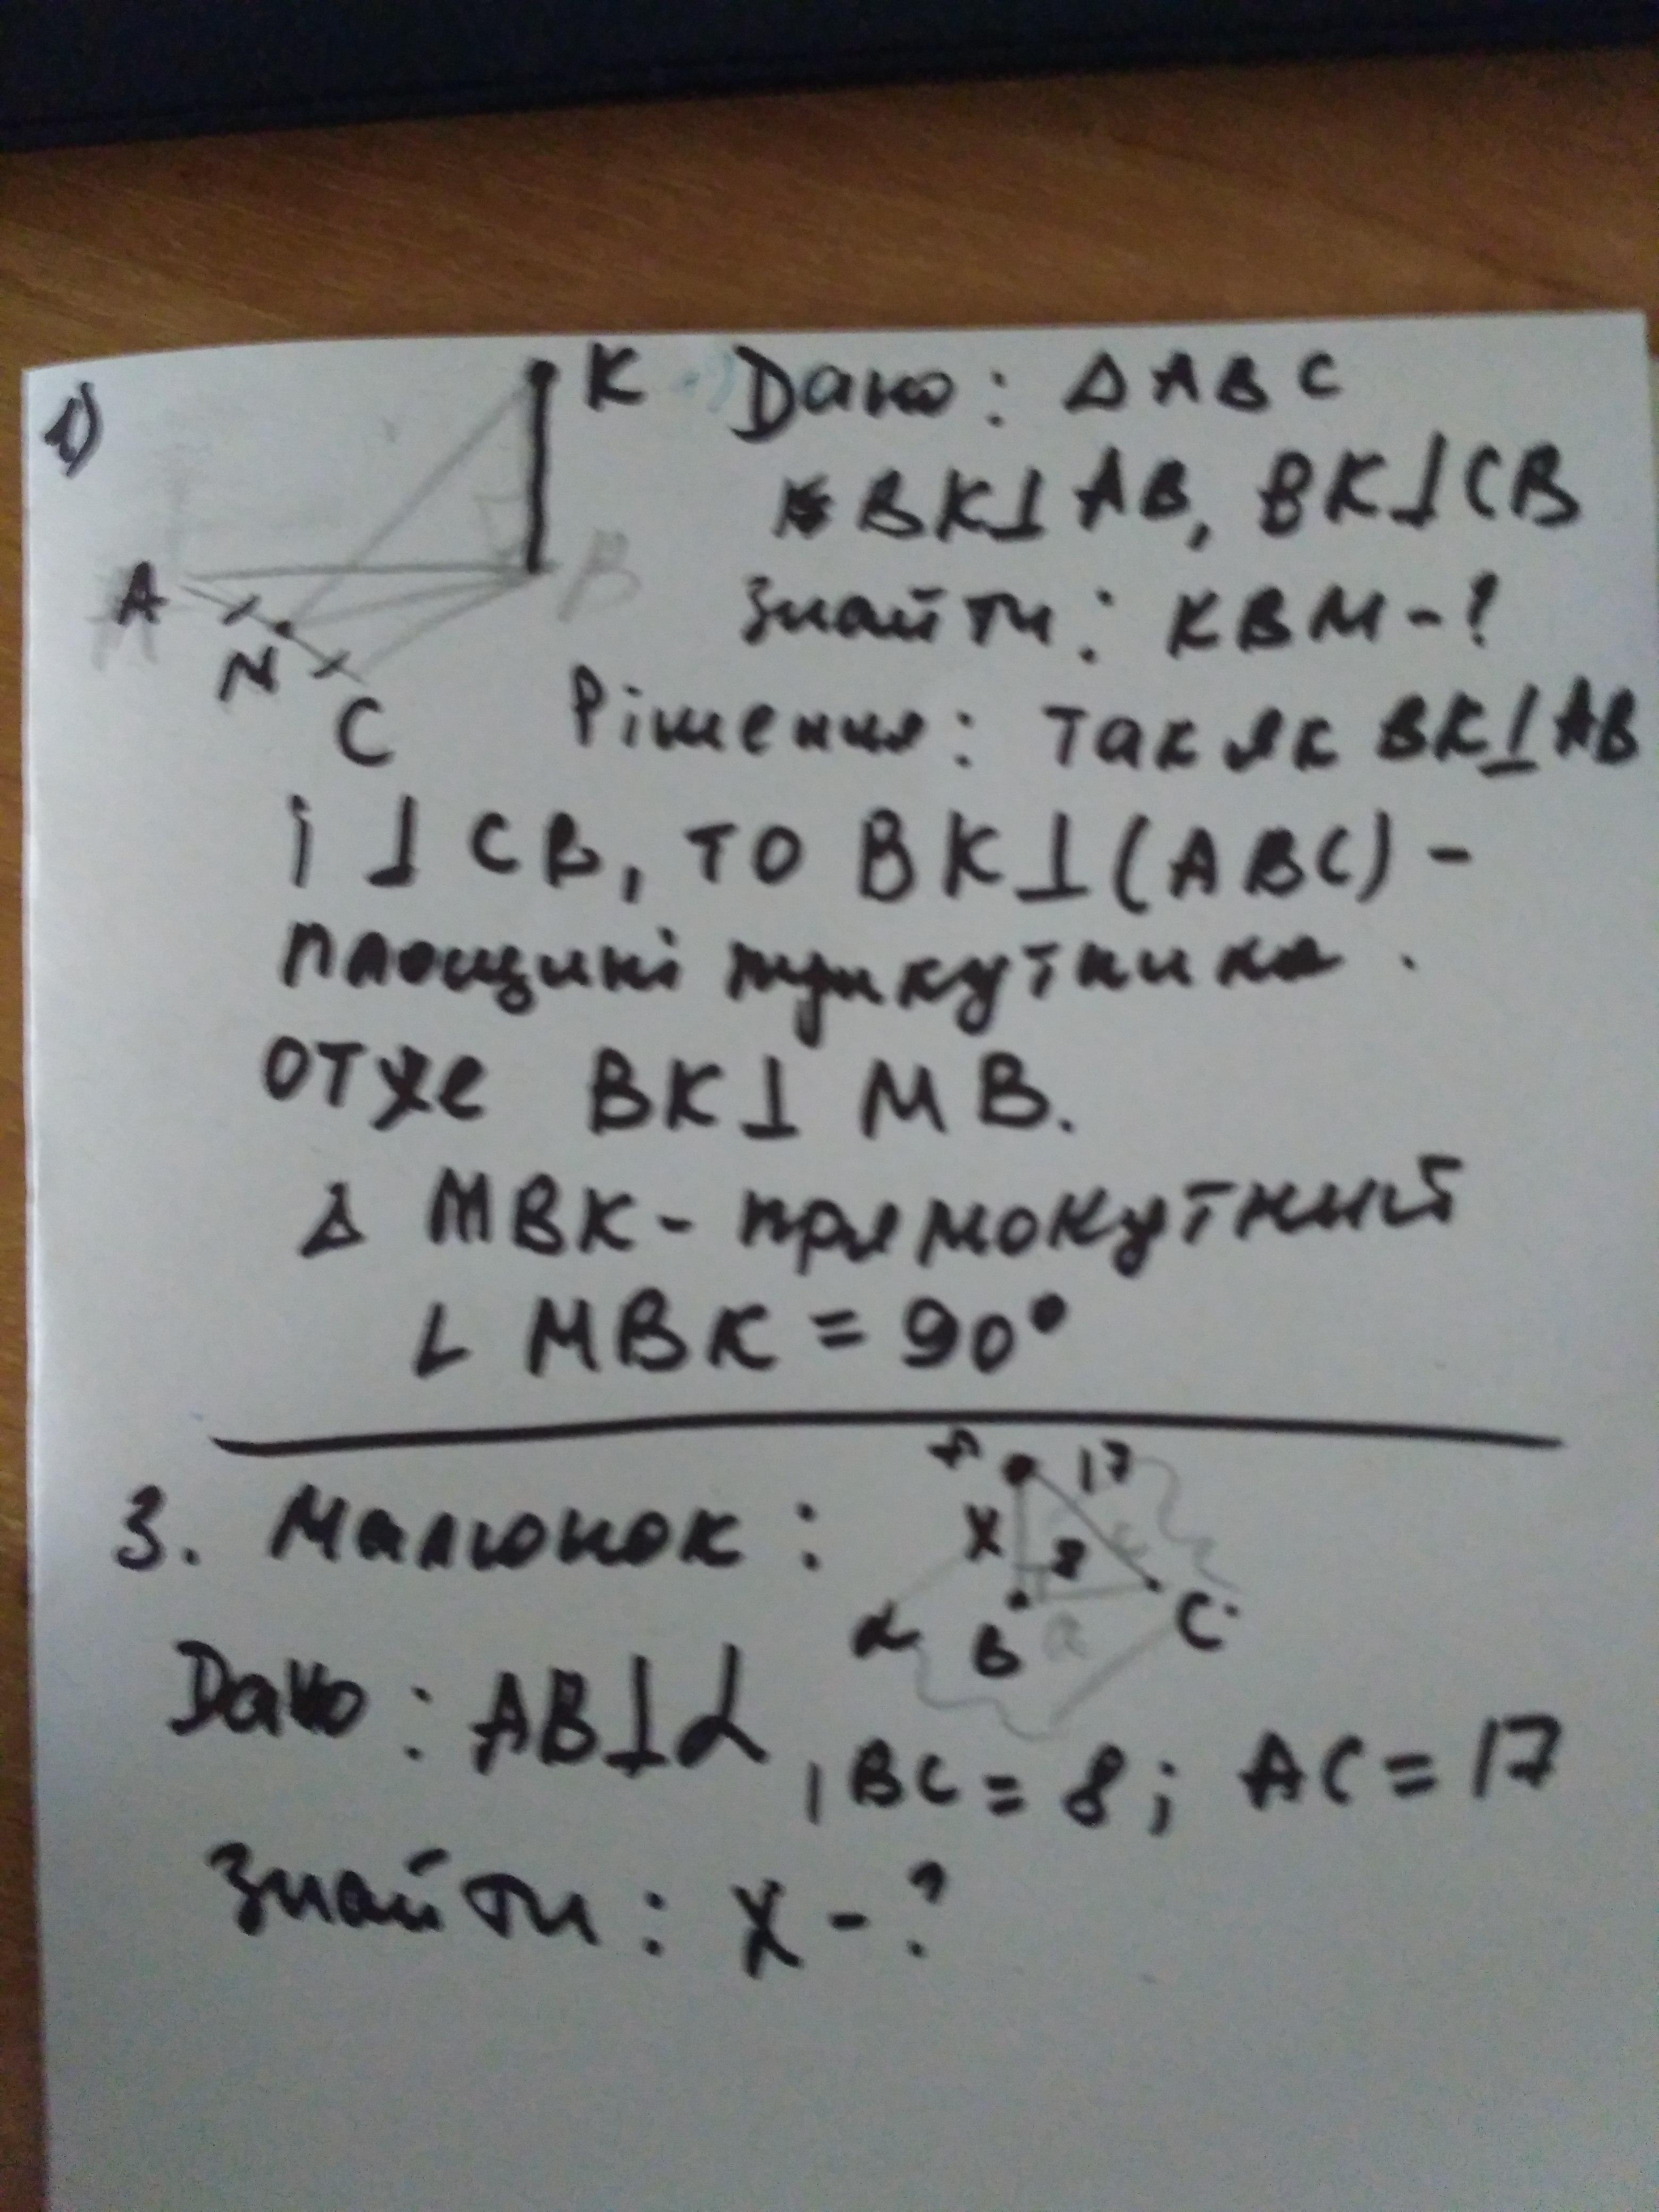 1)
K Дано: Δ ABC
BK⊥AB, BK⊥CB
A
B
Знайти: KBM-?
N
C Рішення: так як BK⊥AB
і ⊥ CB, то BK⊥(ABC) -
площині трикутника.
отже BK⊥ MB.
Δ MBK- прямокутний
∠ MBK = 90°
3. Малюнок:
17
X
8
α B a C
Дано: AB⊥α, BC = 8; AC = 17
Знайти: X - ?